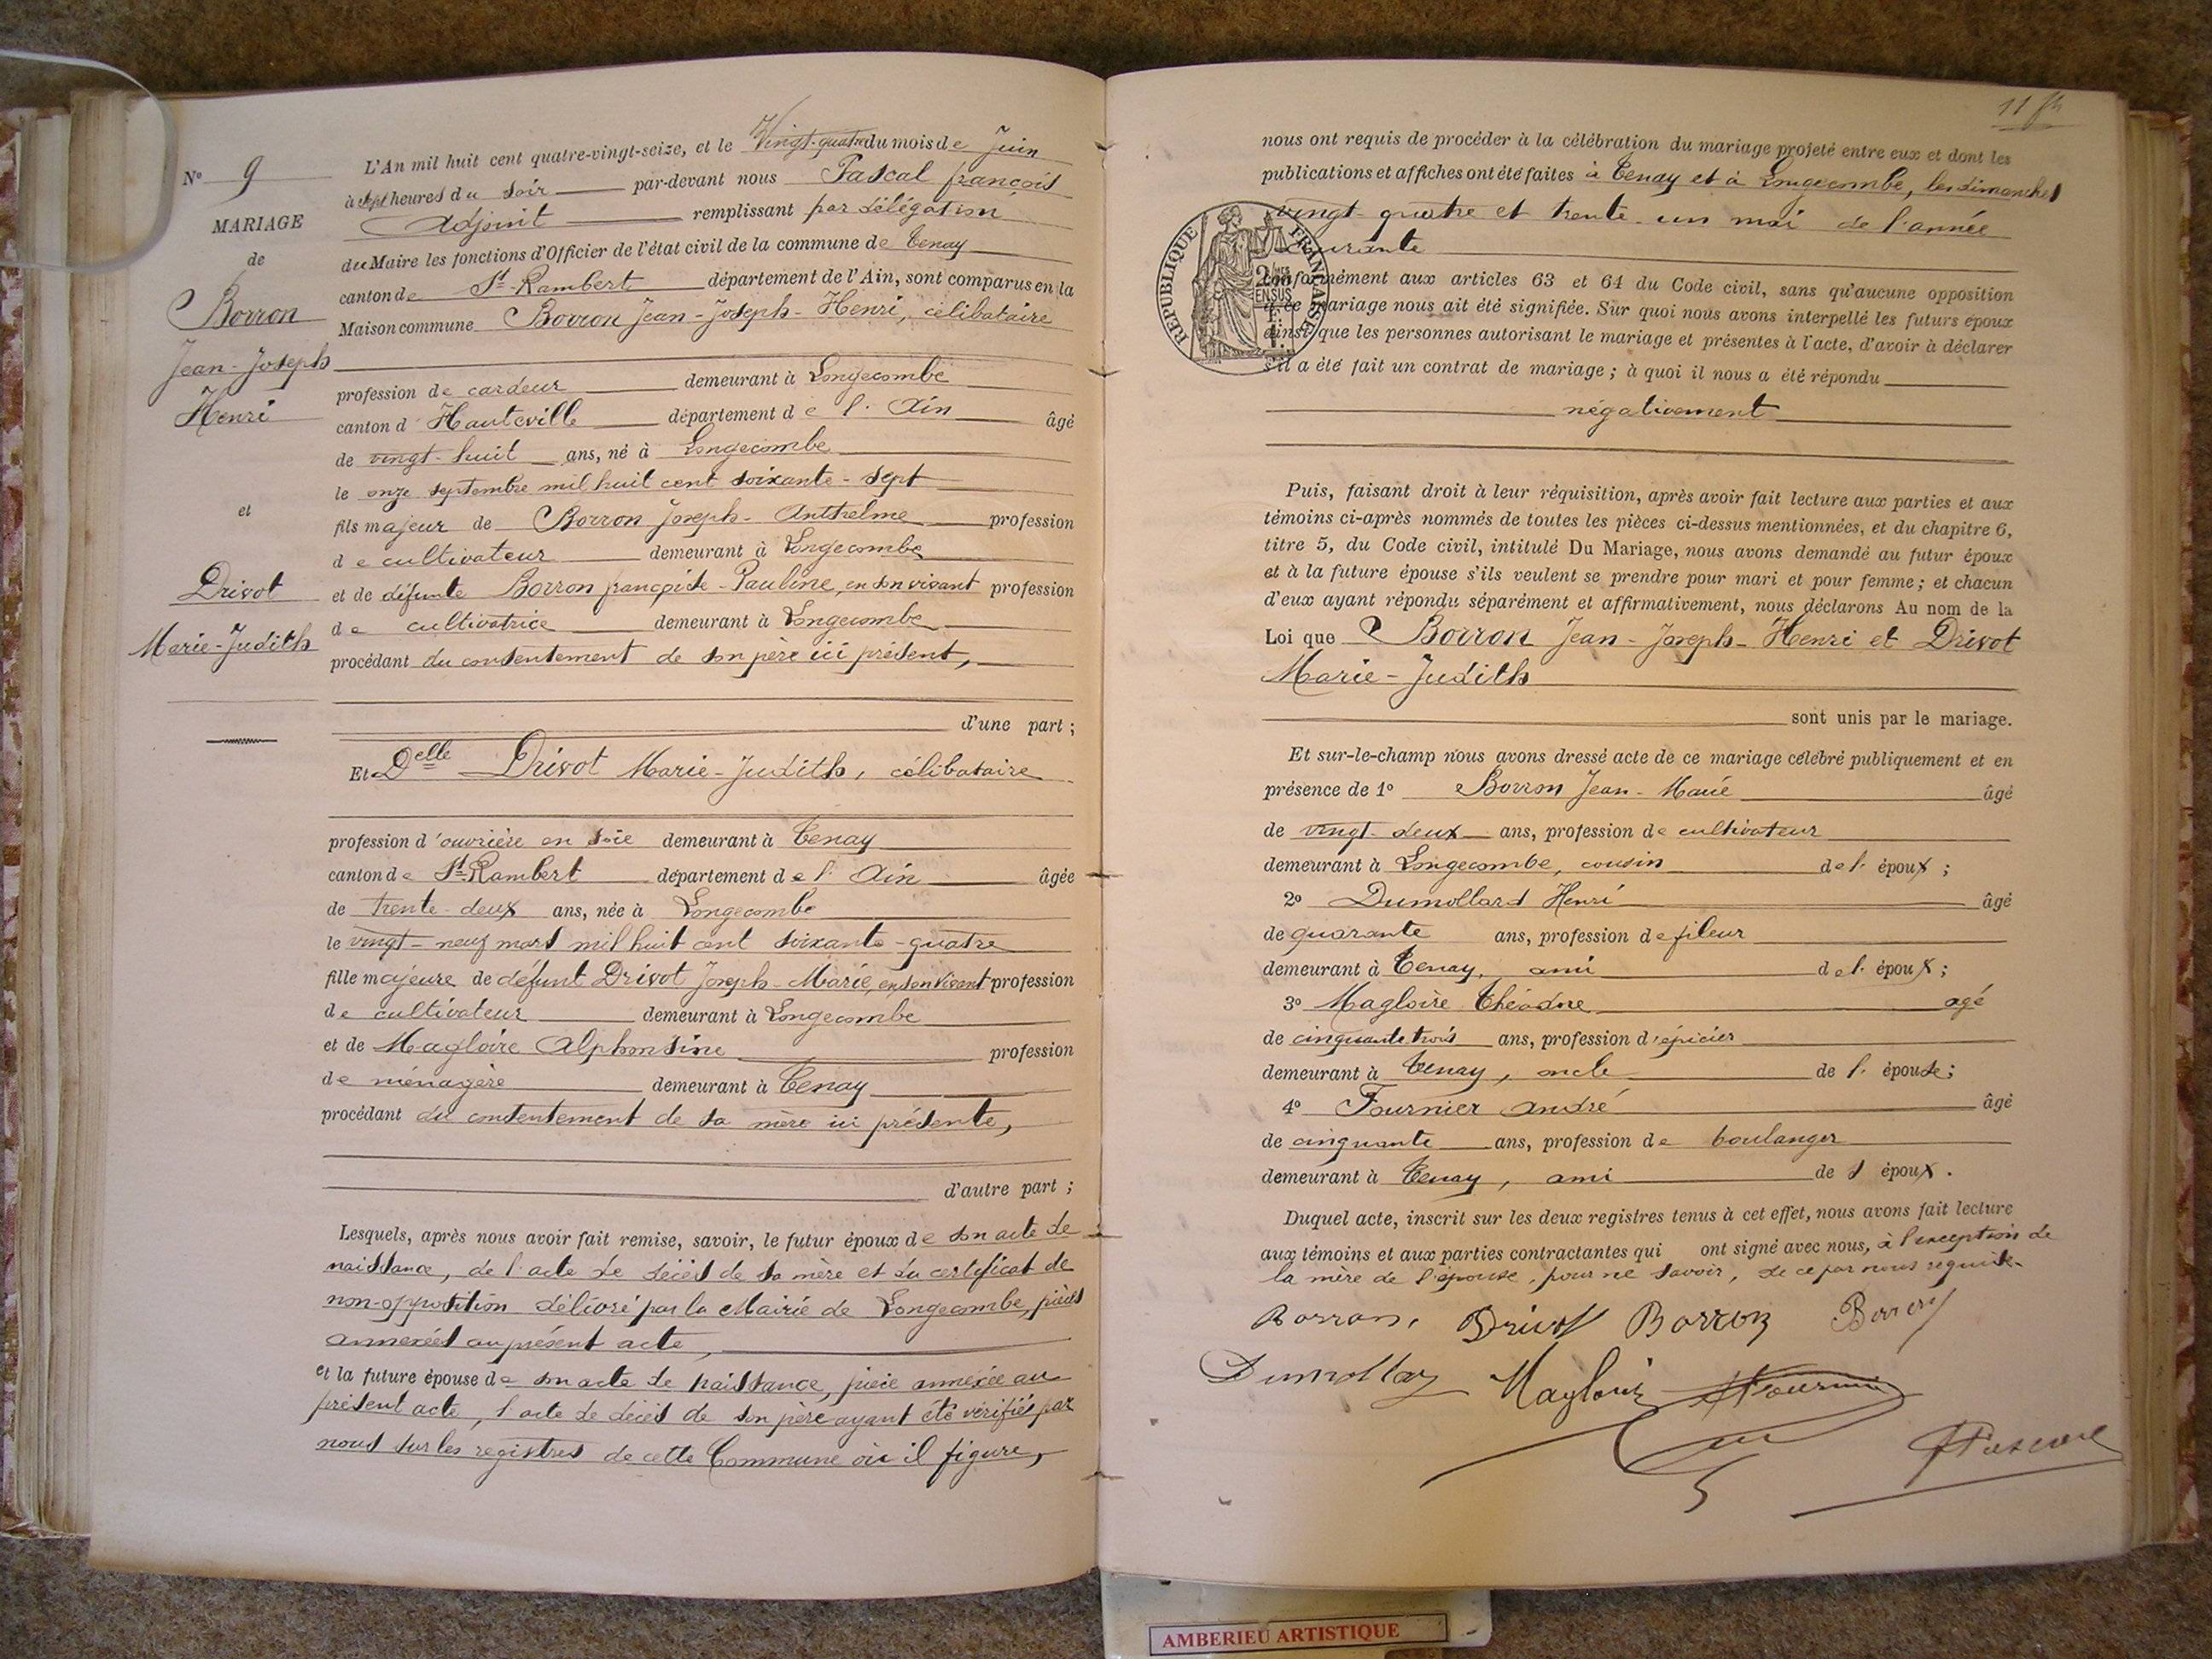 N° 9
MARIAGE
de
Borron
Jean-Joseph
Henri
et
Drivot
Marie-Judith
L'An mil huit cent quatre-vingt-seize, et le Vingt-quatre du mois de Juin
à sept heures du soir par-devant nous Pascal françois
Adjoint remplissant par délégation
du Maire les fonctions d'Officier de l'état civil de la commune de Tenay
canton de St-Rambert département de l'Ain, sont comparus en la
Maison commune Borron Jean-Joseph-Henri, célibataire
profession de cardeur demeurant à Longecombe
canton d'Hauteville département de l'Ain âgé
de vingt-huit ans, né à Longecombe
le onze septembre mil huit cent soixante-sept
fils majeur de Borron Joseph-Anthelme profession
de cultivateur demeurant à Longecombe
et de défunte Borron françoise-Pauline, en son vivant profession
de cultivatrice demeurant à Longecombe
procédant du consentement de son père ici présent,
d'une part ;
Et Delle Drivot Marie-Judith, célibataire
profession d'ouvrière en soie demeurant à Tenay
canton de St-Rambert département de l'Ain âgée
de trente-deux ans, née à Longecombe
le vingt-neuf mars mil huit cent soixante-quatre
fille majeure de défunt Drivot Joseph-Marie, en son vivant profession
de cultivateur demeurant à Longecombe
et de Magloire Alphonsine profession
de ménagère demeurant à Tenay
procédant du consentement de sa mère ici présente,
d'autre part ;
Lesquels, après nous avoir fait remise, savoir, le futur époux de son acte de
naissance, de l'acte de décès de sa mère et du certificat de
non-opposition délivré par la Mairie de Longecombe, pièces
annexées au présent acte,
et la future épouse de son acte de naissance, pièce annexée au
présent acte, l'acte de décès de son père ayant été vérifié par
nous sur les registres de cette Commune où il figure,
11
nous ont requis de procéder à la célébration du mariage projeté entre eux et dont les
publications et affiches ont été faites à Tenay et à Longecombe, les dimanches
vingt-quatre et trente-un mai de l'année
courante
RÉPUBLIQUE FRANÇAISE
conformément aux articles 63 et 64 du Code civil, sans qu'aucune opposition
à ce mariage nous ait été signifiée. Sur quoi nous avons interpellé les futurs époux
ainsi que les personnes autorisant le mariage et présentes à l'acte, d'avoir à déclarer
s'il a été fait un contrat de mariage ; à quoi il nous a été répondu
négativement
Puis, faisant droit à leur réquisition, après avoir fait lecture aux parties et aux
témoins ci-après nommés de toutes les pièces ci-dessus mentionnées, et du chapitre 6,
titre 5, du Code civil, intitulé Du Mariage, nous avons demandé au futur époux
et à la future épouse s'ils veulent se prendre pour mari et pour femme ; et chacun
d'eux ayant répondu séparément et affirmativement, nous déclarons Au nom de la
Loi que Borron Jean-Joseph-Henri et Drivot
Marie-Judith
sont unis par le mariage.
Et sur-le-champ nous avons dressé acte de ce mariage célébré publiquement et en
présence de 1° Borron Jean-Marie âgé
de vingt-deux ans, profession de cultivateur
demeurant à Longecombe, cousin de l'époux ;
2° Dumollard Henri âgé
de quarante ans, profession de fileur
demeurant à Tenay, ami de l'époux ;
3° Magloire Théodore agé
de cinquante trois ans, profession d'épicier
demeurant à Tenay, oncle de l'épouse ;
4° Fournier André âgé
de cinquante ans, profession de boulanger
demeurant à Tenay, ami de l'époux.
Duquel acte, inscrit sur les deux registres tenus à cet effet, nous avons fait lecture
aux témoins et aux parties contractantes qui ont signé avec nous, à l'exception de
la mère de l'épouse, pour ne savoir, de ce par nous requise.
Borron, Drivot Borron Borron
Dumollar Magloire Fournier
Pascal
AMBERIEU ARTISTIQUE